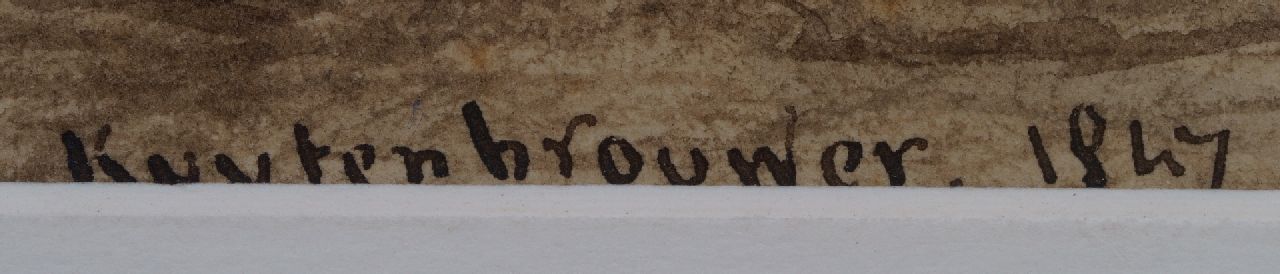 Kuytenbrouwer. 1847